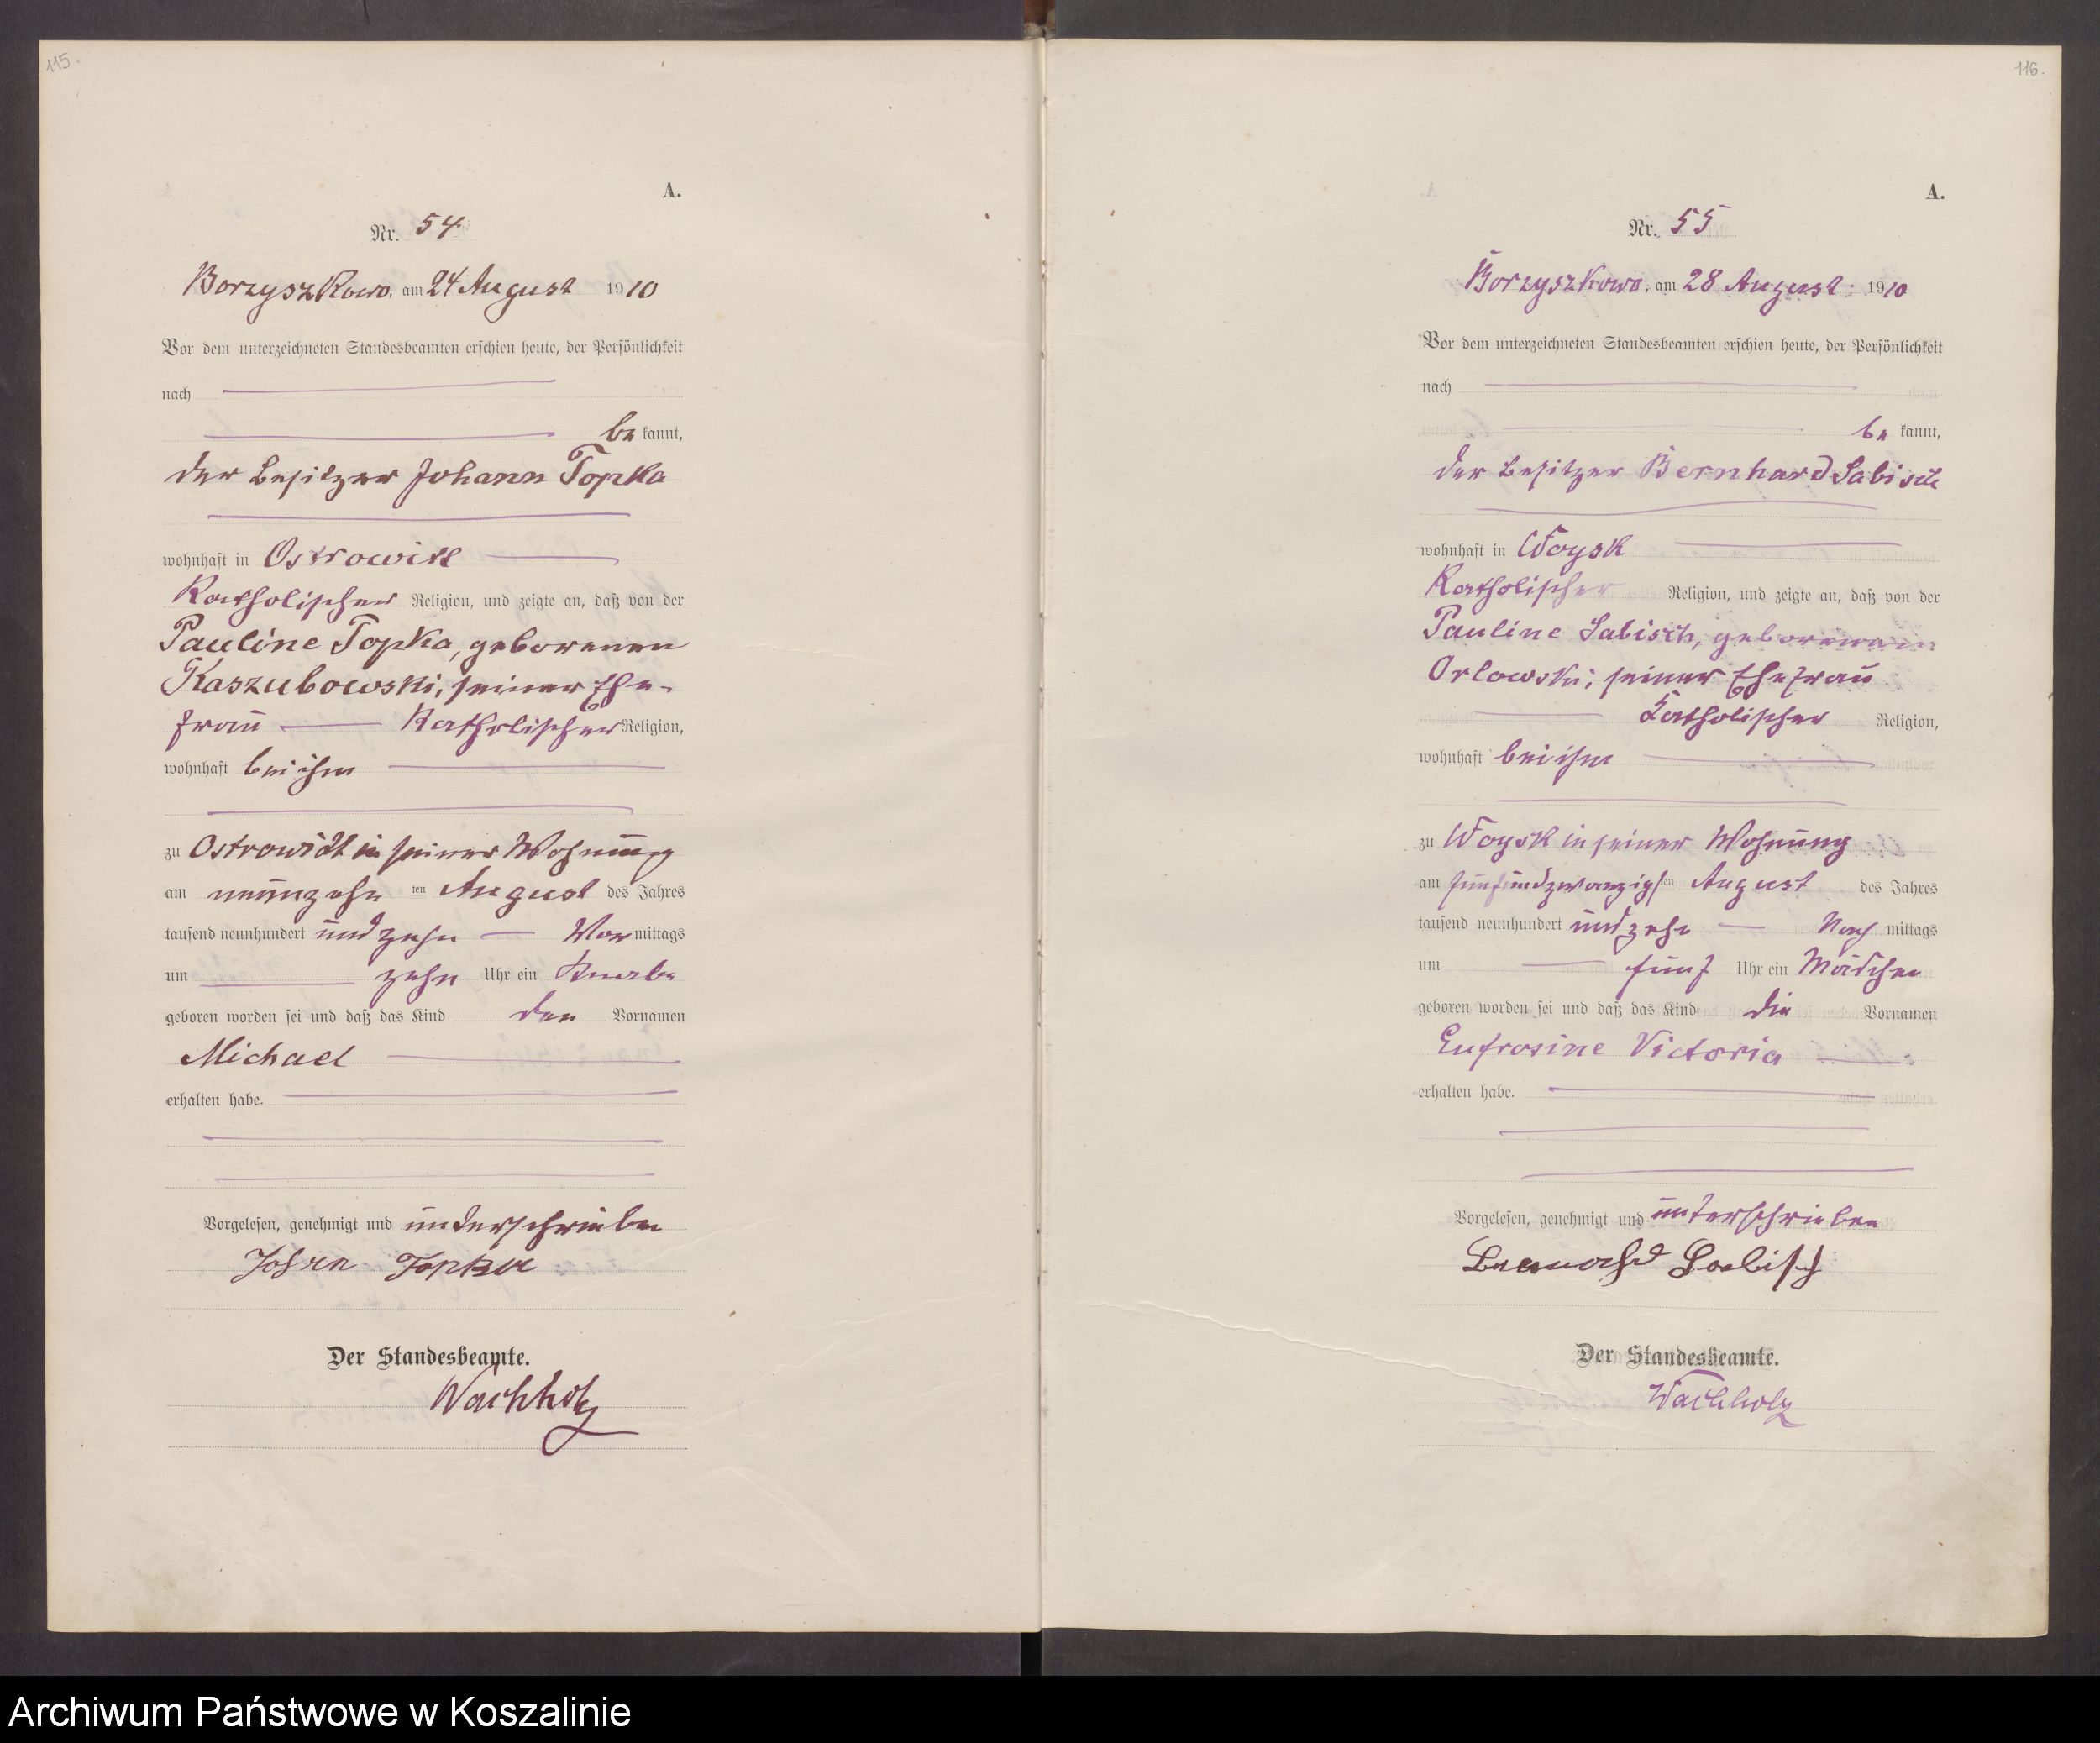 115.
A.
Nr. 54
Borzyszkowo, am 24 August 1910
Vor dem unterzeichneten Standesbeamten erschien heute, der Persönlichkeit
nach
be kannt,
der Besitzer Johann Topka
wohnhaft in Ostrowitt
Katholischer Religion, und zeigte an, daß von der
Pauline Topka, geborenen
Kaszubowski, seiner Ehe-
frau Katholischer Religion,
wohnhaft bei ihm
zu Ostrowitt in seiner Wohnung
am neunzehn ten August des Jahres
tausend neunhundert und zehn Vor mittags
um zehn Uhr ein Knabe
geboren worden sei und daß das Kind den Vornamen
Michael
erhalten habe.
Vorgelesen, genehmigt und unterschrieben
Johann Topka
Der Standesbeamte.
Wachholz
116.
A.
Nr. 55
Borzyszkowo, am 28 August 1910
Vor dem unterzeichneten Standesbeamten erschien heute, der Persönlichkeit
nach
be kannt,
der Besitzer Bernhard Sabisch
wohnhaft in Woysk
Katholischer Religion, und zeigte an, daß von der
Pauline Sabisch, geborenen
Orlowski, seiner Ehefrau
Katholischer Religion,
wohnhaft bei ihm
zu Woysk in seiner Wohnung
am fünfundzwanzigsten August des Jahres
tausend neunhundert und zehn Nach mittags
um fünf Uhr ein Mädchen
geboren worden sei und daß das Kind die Vornamen
Eufrosine Victoria
erhalten habe.
Vorgelesen, genehmigt und unterschrieben
Bernhard Sabisch
Der Standesbeamte.
Wachholz
Archiwum Państwowe w Koszalinie